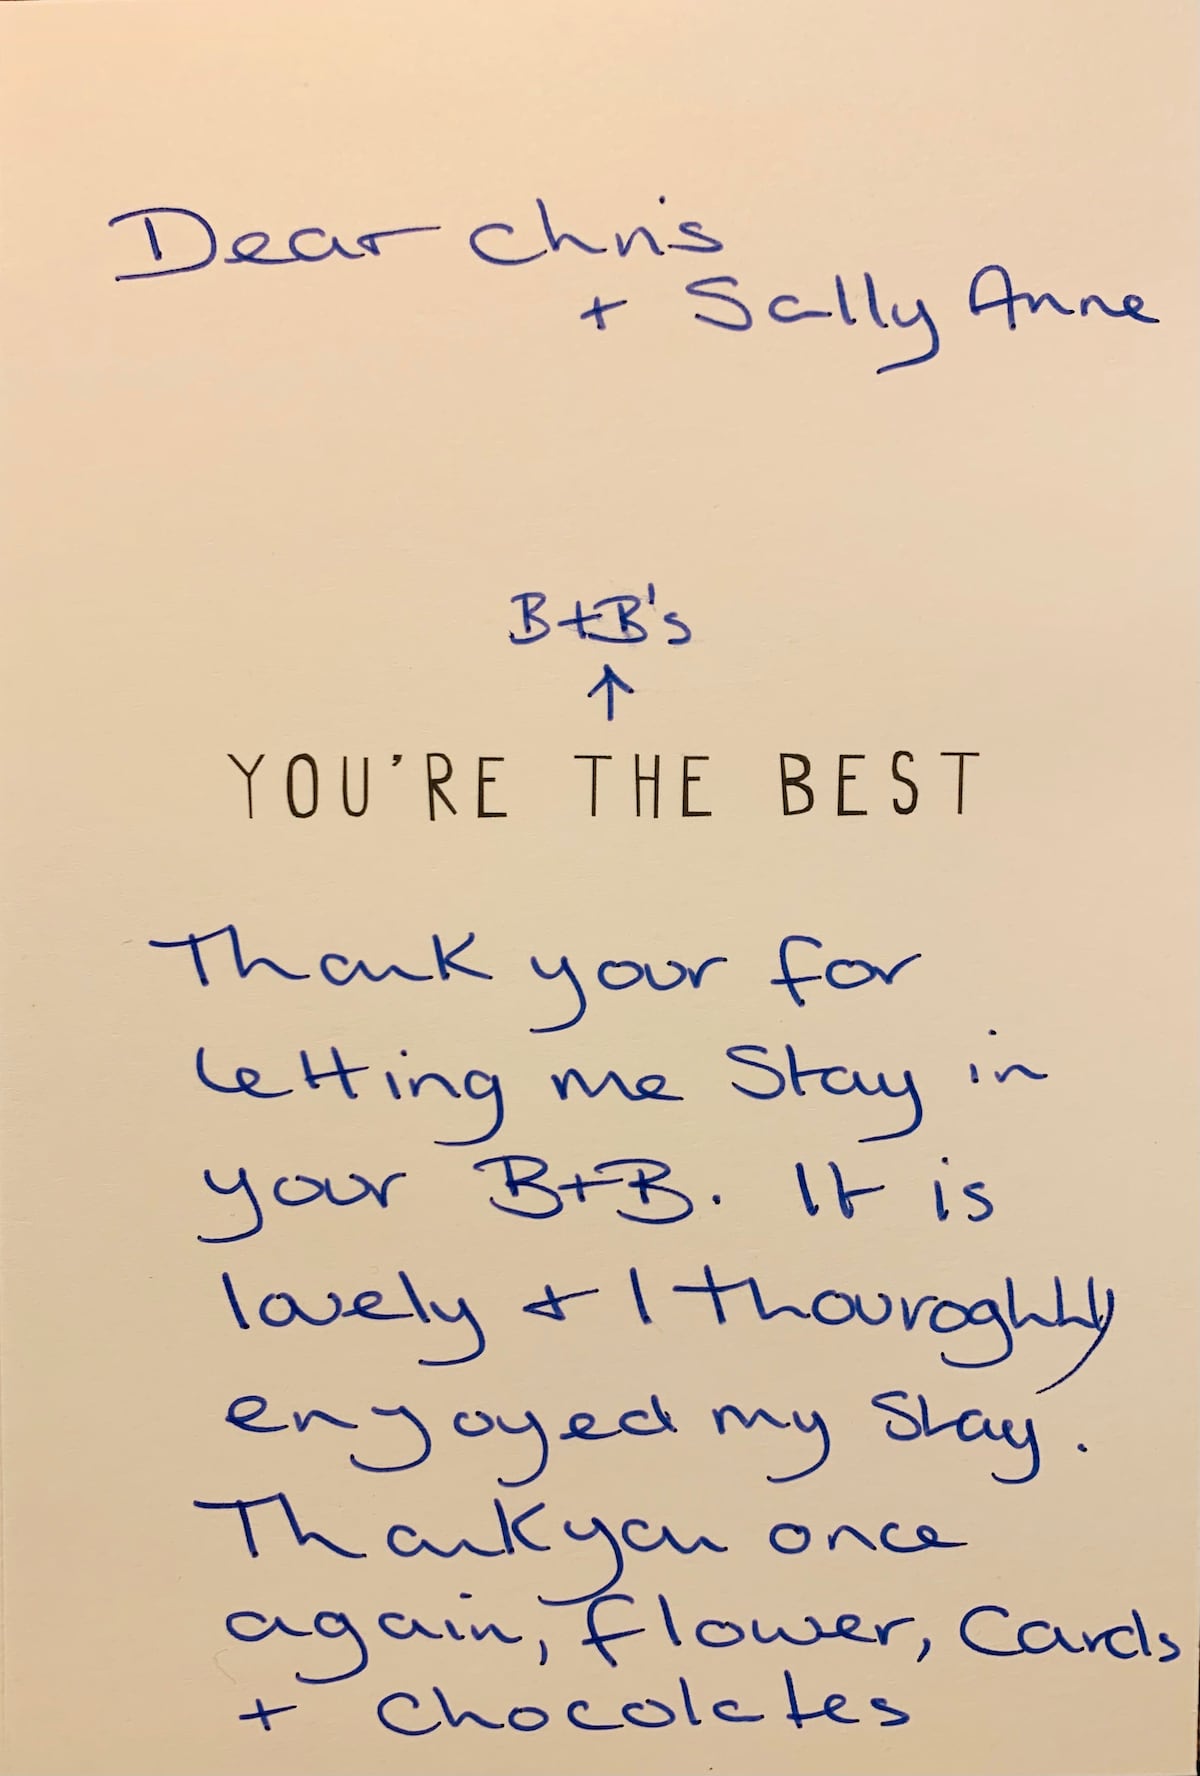 Dear Chris
+ Sally Anne
B+B's
↑
YOU'RE THE BEST
Thank your for
letting me stay in
your B+B. It is
lovely + I thouroghly
enjoyed my stay.
Thankyou once
again, flower, Cards
+ chocolates